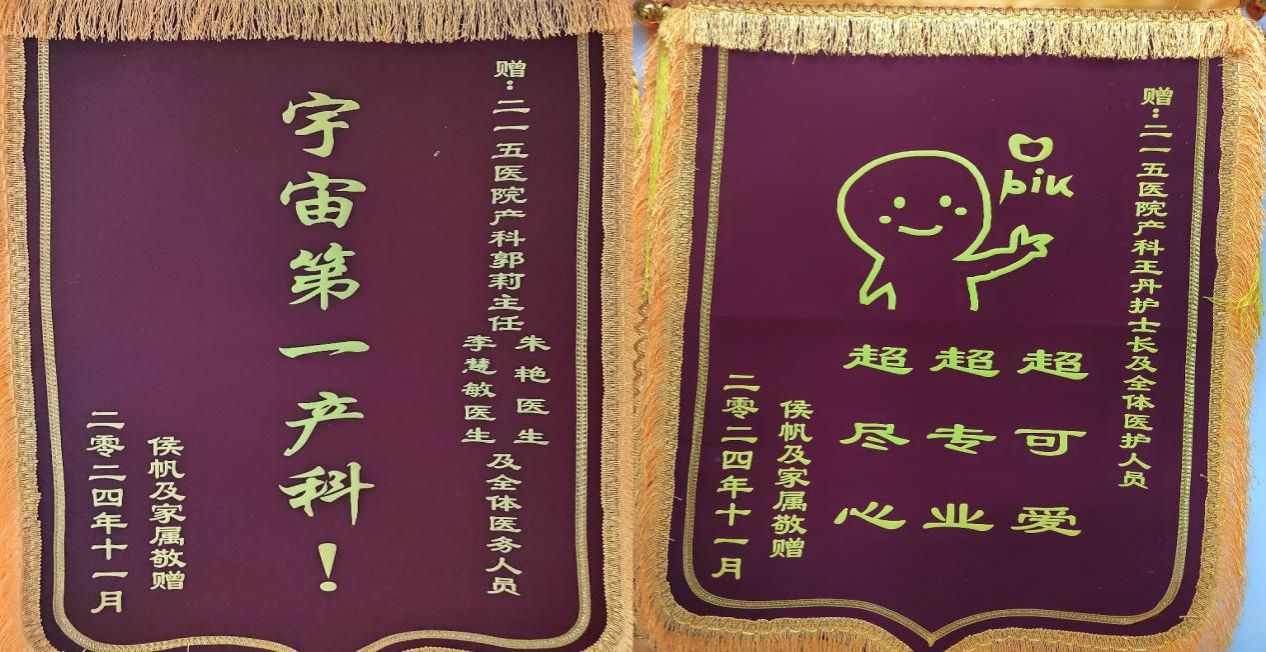 赠：二一五医院产科郭莉主任
朱艳医生
李慧敏医生
及全体医务人员
宇宙第一产科！
侯帆及家属敬赠
二零二四年十一月
赠：二一五医院产科王丹护士长及全体医护人员
biu
超可爱
超专业
超尽心
侯帆及家属敬赠
二零二四年十一月